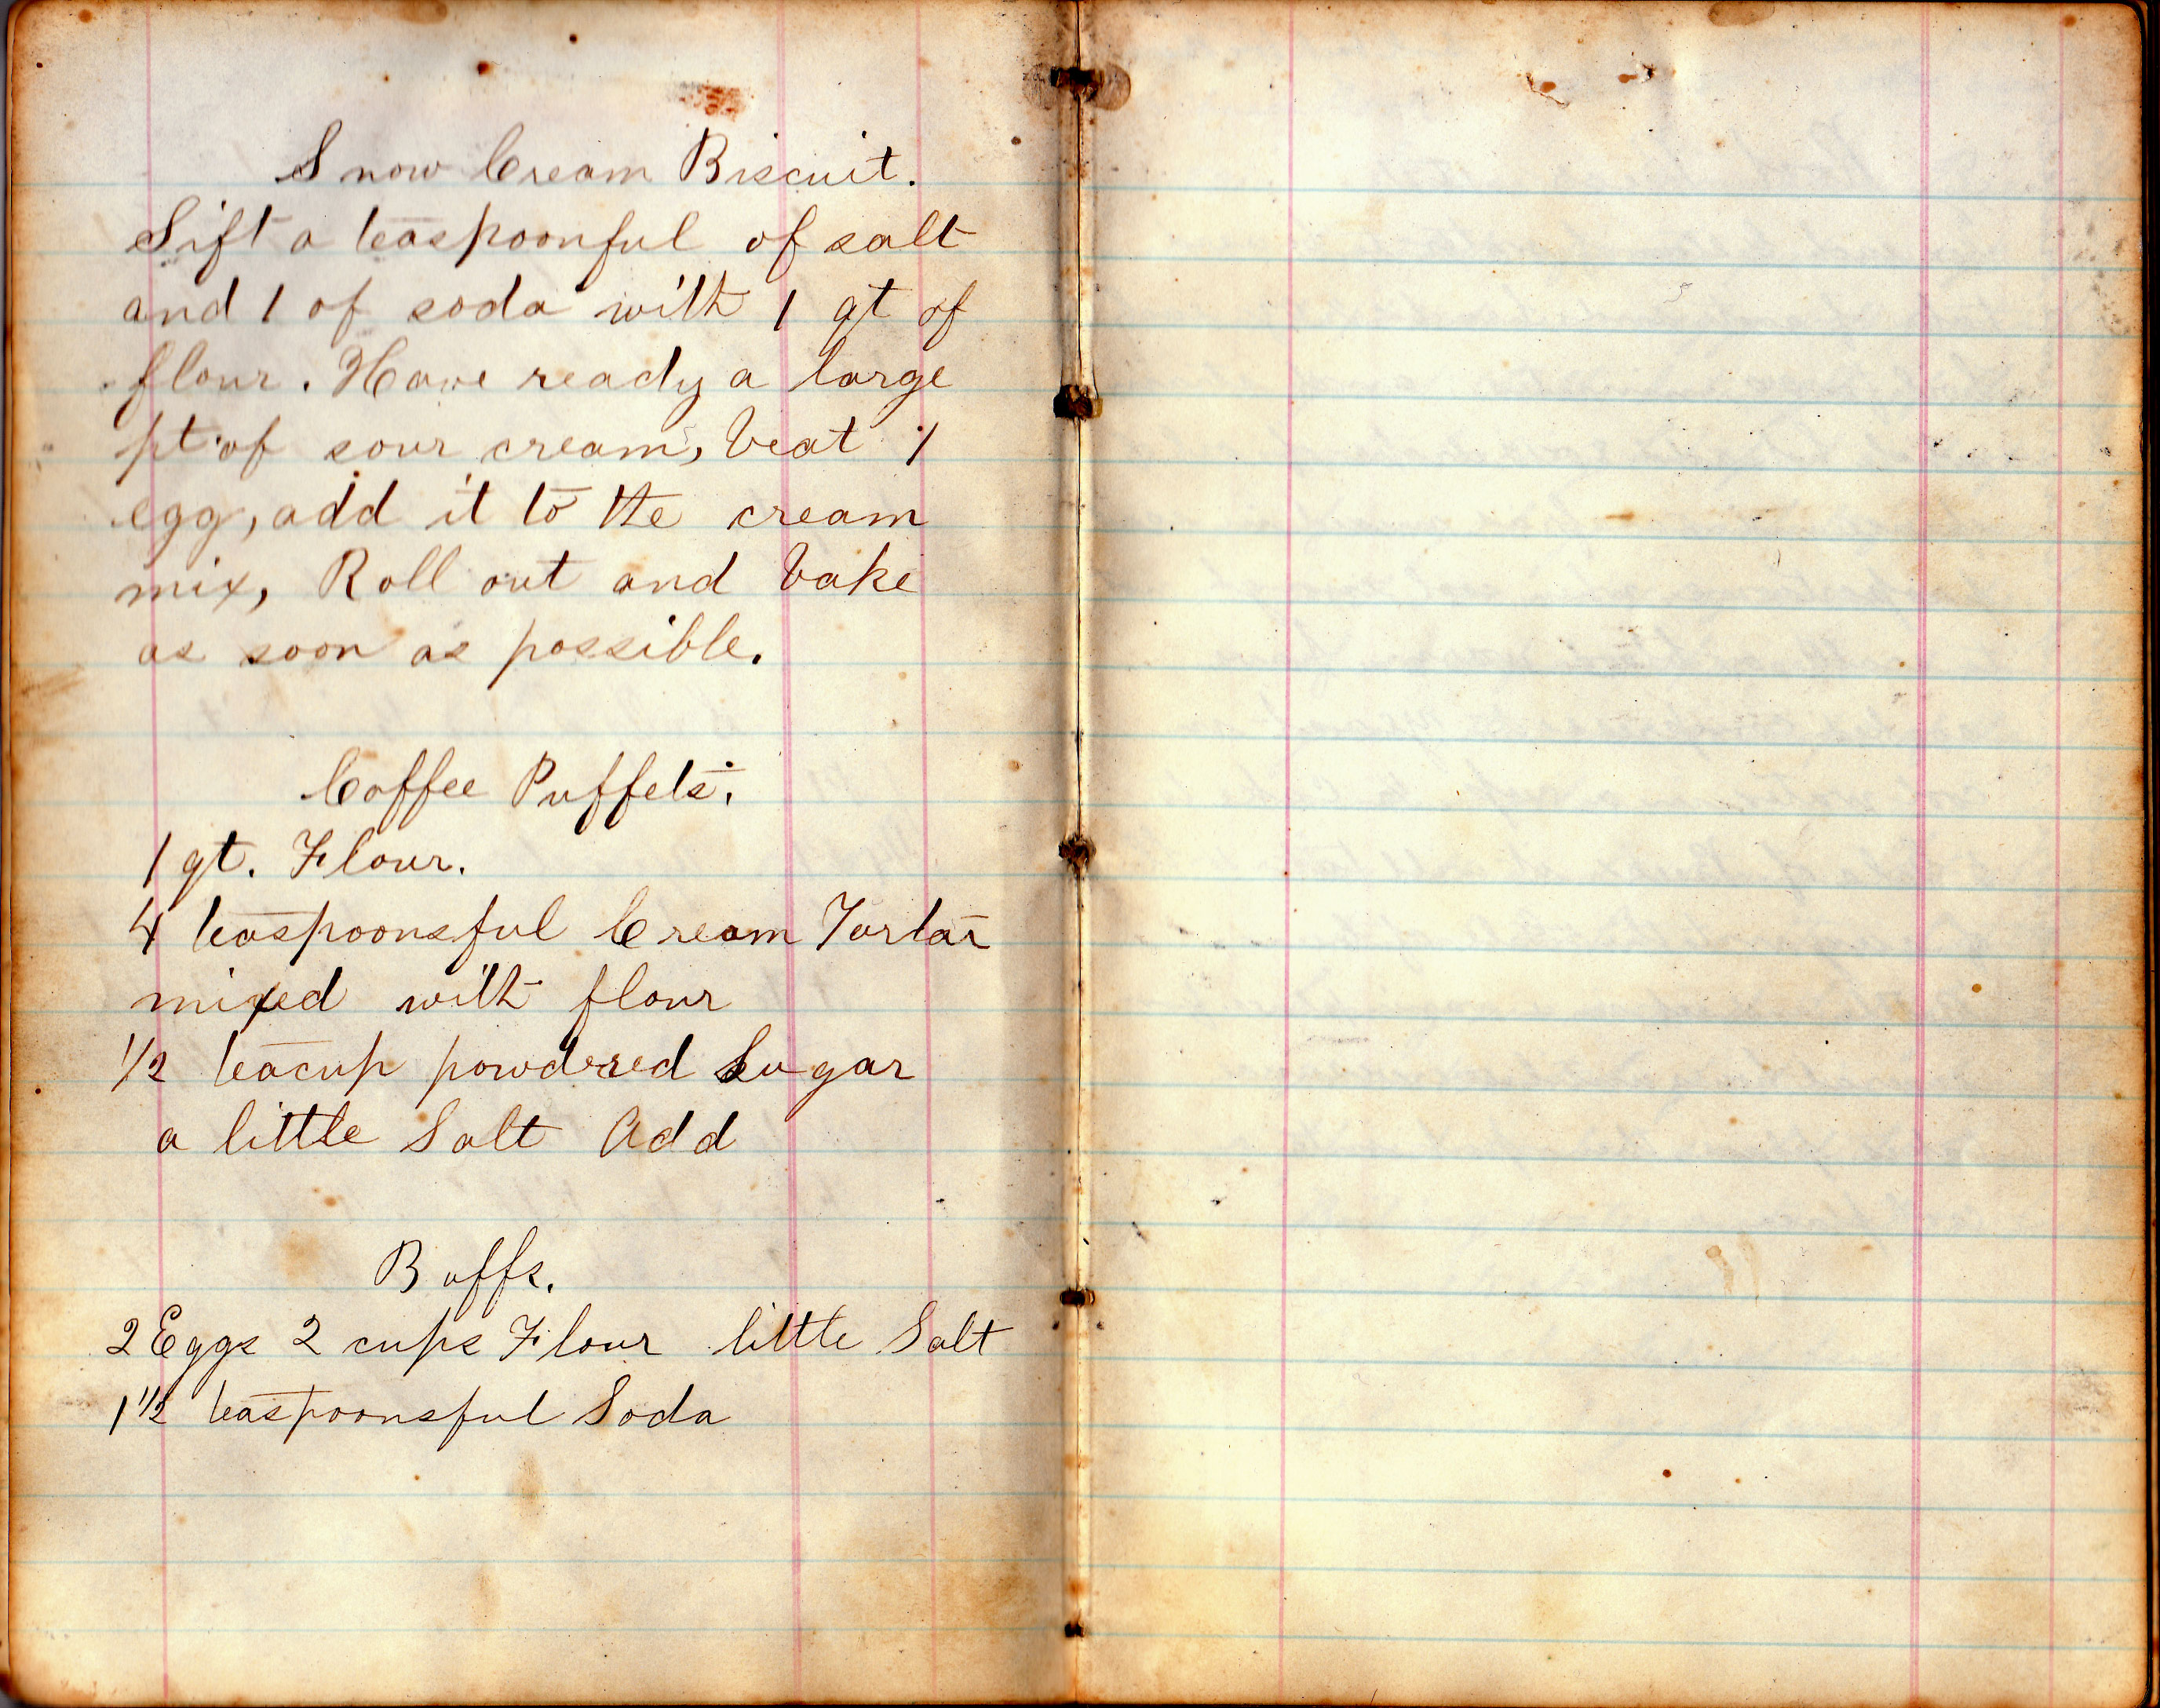 Snow Cream Biscuit.
Sift a teaspoonful of salt
and 1 of soda with 1 qt of
flour. Have ready a large
pt of sour cream, beat 1
egg, add it to the cream
mix, Roll out and bake
as soon as possible.
Coffee Puffets.
1 qt. Flour.
4 teaspoonsful Cream Tartar
mixed with flour
1/2 teacup powdered Sugar
a little Salt Add
Buffs.
2 Eggs 2 cups Flour little Salt
1 1/2 teaspoonsful Soda